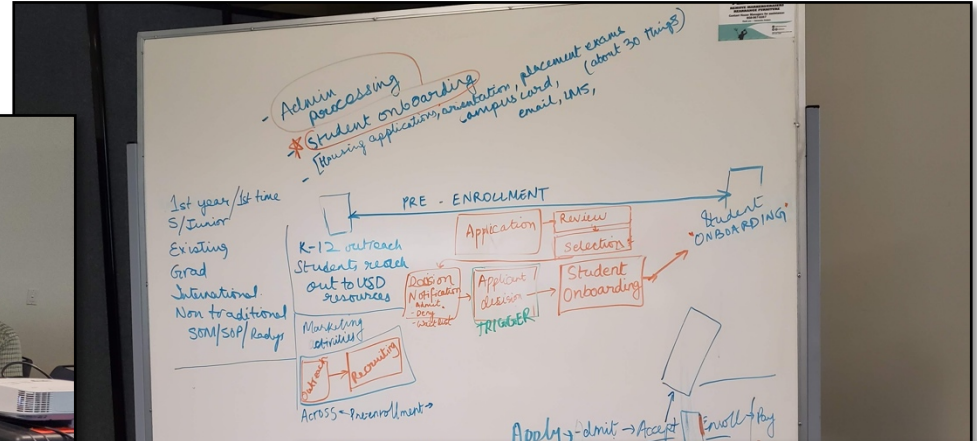 - Admin
processing
- * Student onboarding
- [Housing applications, orientation, placement exams
campus card, (about 30 things)
email, LMS,
1st year/1st time
S/Junior
Existing
Grad
International
Non traditional
SOM/SOP/Radys
PRE-ENROLLMENT
K-12 outreach
Students reach
out to USD
resources
Marketing
activities
Outreach → Recruiting
Across ← Pre enrollment →
Application
Review
Selection
Decision
Notification
- Admit
- Deny
- Waitlist
Applicant
decision
TRIGGER
Student
Onboarding
Student
"ONBOARDING"
Apply → Admit → Accept Enroll → Pay